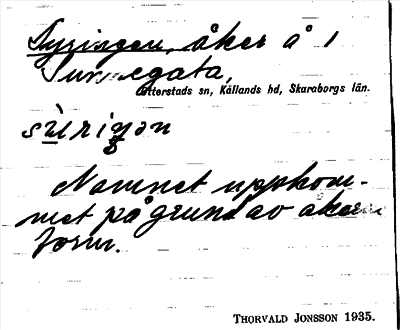 Syringen, åker å 1
Sunnegata,
Otterstads sn, Kållands hd, Skaraborgs län.
Namnet uppkom-
met på grund av åkerns
form.
THORVALD JONSSON 1935.